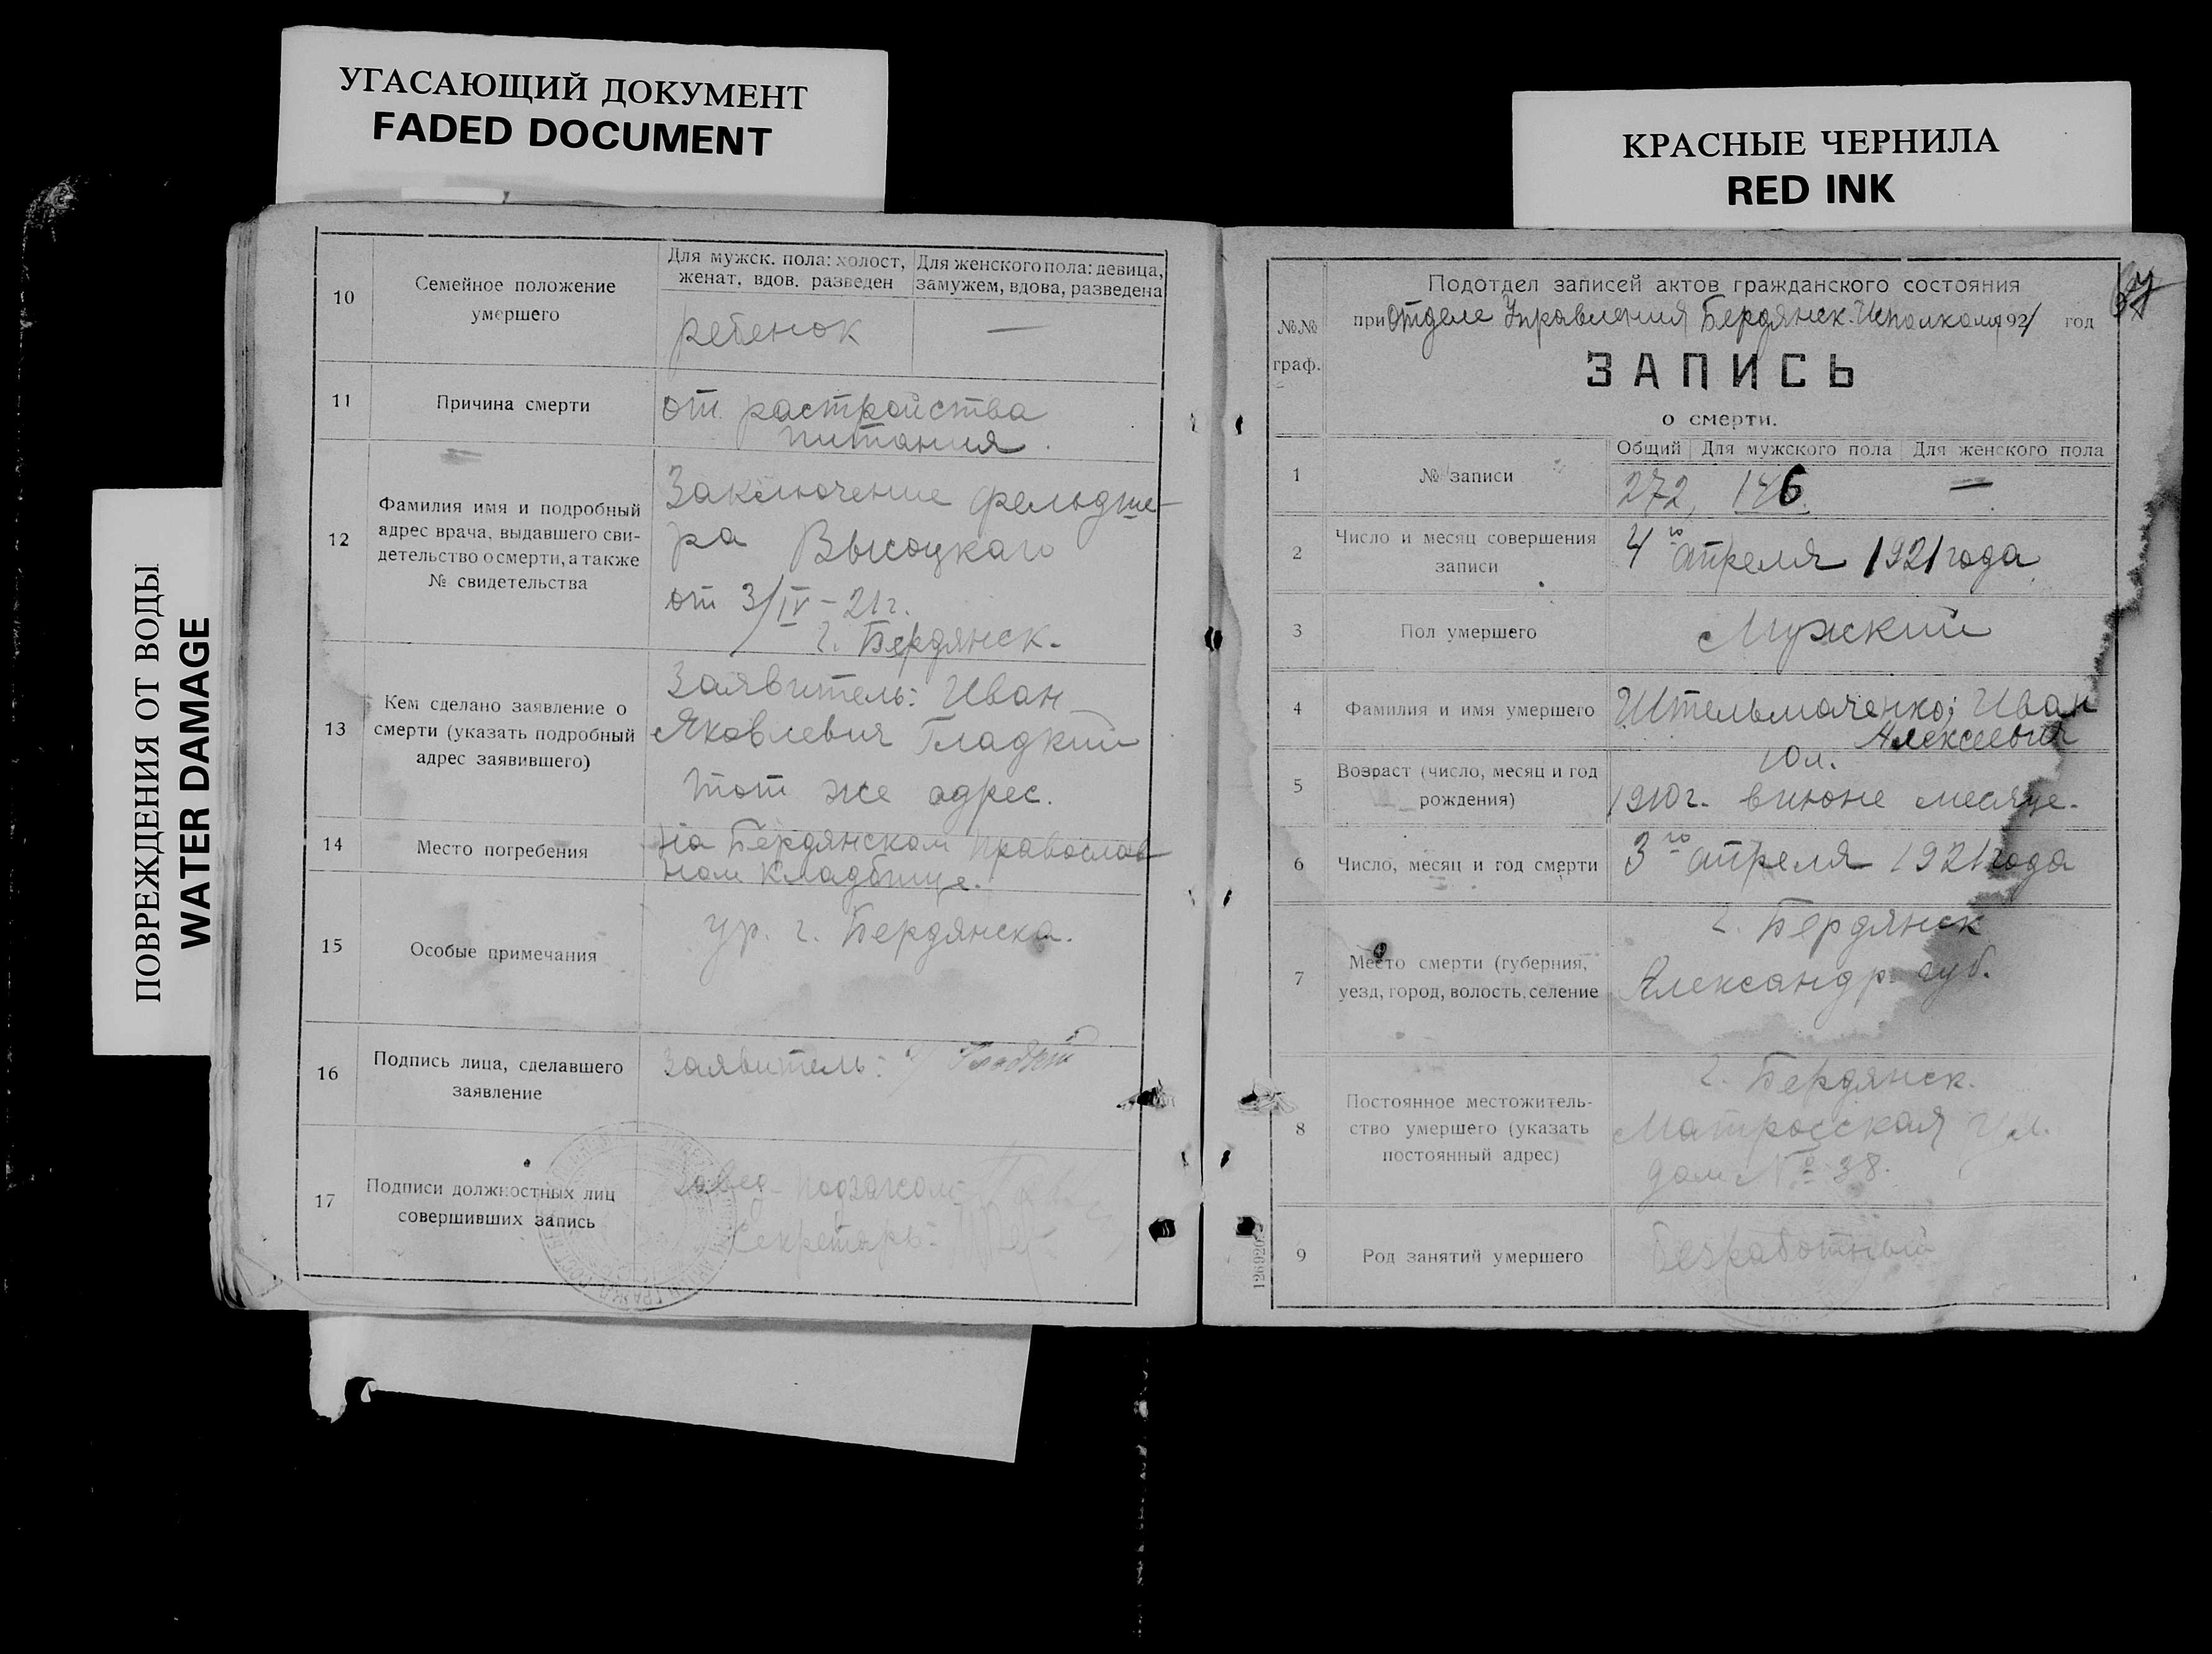 УГАСАЮЩИЙ ДОКУМЕНТ
FADED DOCUMENT
КРАСНЫЕ ЧЕРНИЛА
RED INK
ПОВРЕЖДЕНИЯ ОТ ВОДЫ
WATER DAMAGE
10
Семейное положение
умершего
Для мужск. пола: холост,
женат, вдов. разведен
Для женского пола: девица,
замужем, вдова, разведена
ребенок
—
11
Причина смерти
от растройства
питания.
12
Фамилия имя и подробный
адрес врача, выдавшего сви-
детельство о смерти, а также
№ свидетельства
Заключение фельдше-
ра Высоцкаго
от 3/IV – 21 г.
г. Бердянск.
13
Кем сделано заявление о
смерти (указать подробный
адрес заявившего)
Заявитель: Иван
Яковлевич Гладкий
тот же адрес.
14
Место погребения
на Бердянском православ
ном кладбище.
15
Особые примечания
ур. г. Бердянска.
16
Подпись лица, сделавшего
заявление
Заявитель: Гладкий
17
Подписи должностных лиц
совершивших запись
Завед. подзагсом
Секретарь:
67
№№
граф.
Подотдел записей актов гражданского состояния
при Отделе Управления Бердянск. Исполкома 1921 год
ЗАПИСЬ
о смерти.
1
№ записи
Общий
Для мужского пола
Для женского пола
272,
146.
—
2
Число и месяц совершения
записи
4го апреля 1921 года
3
Пол умершего
Мужский
4
Фамилия и имя умершего
Штельмаченко; Иван
Алексеевич
5
Возраст (число, месяц и год
рождения)
10 л.
1910 г. в июне месяце.
6
Число, месяц и год смерти
3го апреля 1921 года
7
Место смерти (губерния,
уезд, город, волость, селение
г. Бердянск
Александр. губ.
8
Постоянное местожитель-
ство умершего (указать
постоянный адрес)
г. Бердянск.
Матросская ул.
дом № 38.
9
Род занятий умершего
безработный